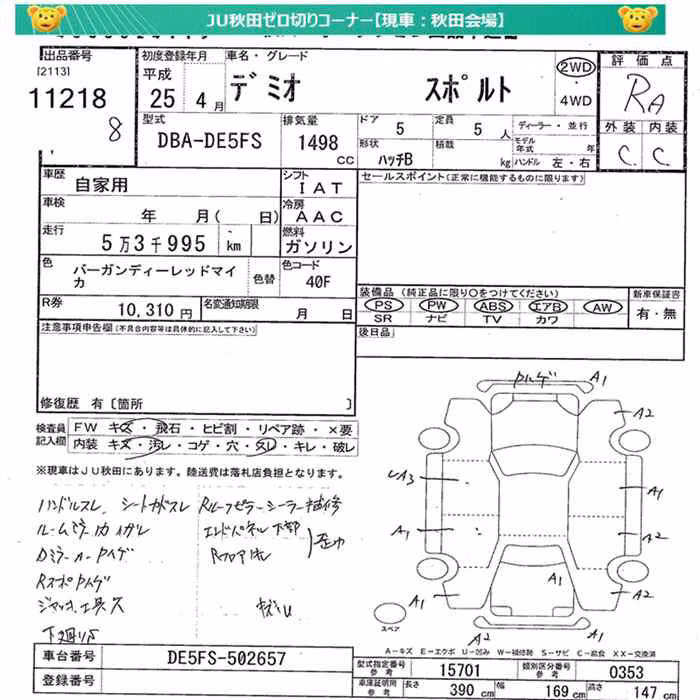 JU秋田ゼロ切りコーナー【現車：秋田会場】
出品番号 初度登録年月 車名・グレード 評価点
[2113] 平成 デミオ スポルト 2WD RA
11218 25年4月 ・
8 4WD
外装 内装
型式 排気量 ドア 5 定員 5人 ディーラー・並行
DBA-DE5FS 1498 CC 形状 ハッチB 積載 kg モデル年式 年 C. C.
ハンドル 左・右
車歴 自家用 シフト IAT セールスポイント(正常に機能するものに限ります)
車検 年 月( 日) 冷房 AAC
走行 5万3千995 km 燃料 ガソリン
色 バーガンディーレッドマイカ 色替 色コード 40F
装備品(純正品に限り○をつけてください) 新車保証書
R券 10,310円 名変通知期限 月 日 PS PW ABS エアB AW 有・無
SR ナビ TV カワ
注意事項申告欄(不具合内容等は具体的に記入して下さい) 後日品
修復歴 有〔箇所 〕
検査員記入欄 FW キズ・飛石・ヒビ割・リペア跡・×要
内装 キズ・汚レ・コゲ・穴・スレ・キレ・破レ
※現車はJU秋田にあります。陸送費は落札店負担となります。
ハンドルスレ シートカドスレ Rルーフピラーシーラー補修
エンドパネル下部
Rフロア
歪ミ
ジャッキ、工具欠
下廻りS
A1
A2
A3
A1
A1
A2
A1
A1
A2
A1
スペア
A－キズ E－エクボ U－凹み W－補修跡 S－サビ C－腐食 XX－交換済
車台番号 DE5FS-502657 型式指定番号 参考 15701 類別区分番号 参考 0353
登録番号 車庫証明用 参考 長さ 390 cm 幅 169 cm 高さ 147 cm